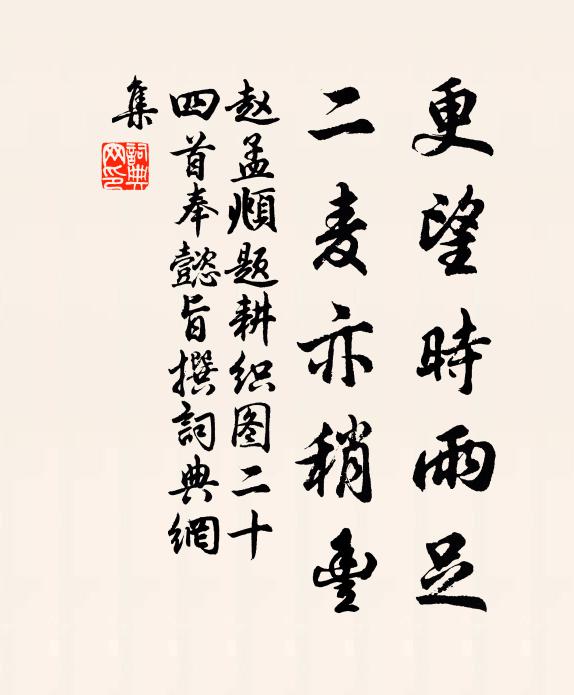 更望時雨足
二麦亦稍豊
赵孟頫题耕织图二十
四首奉懿旨撰詞典網
集
詞典
网印